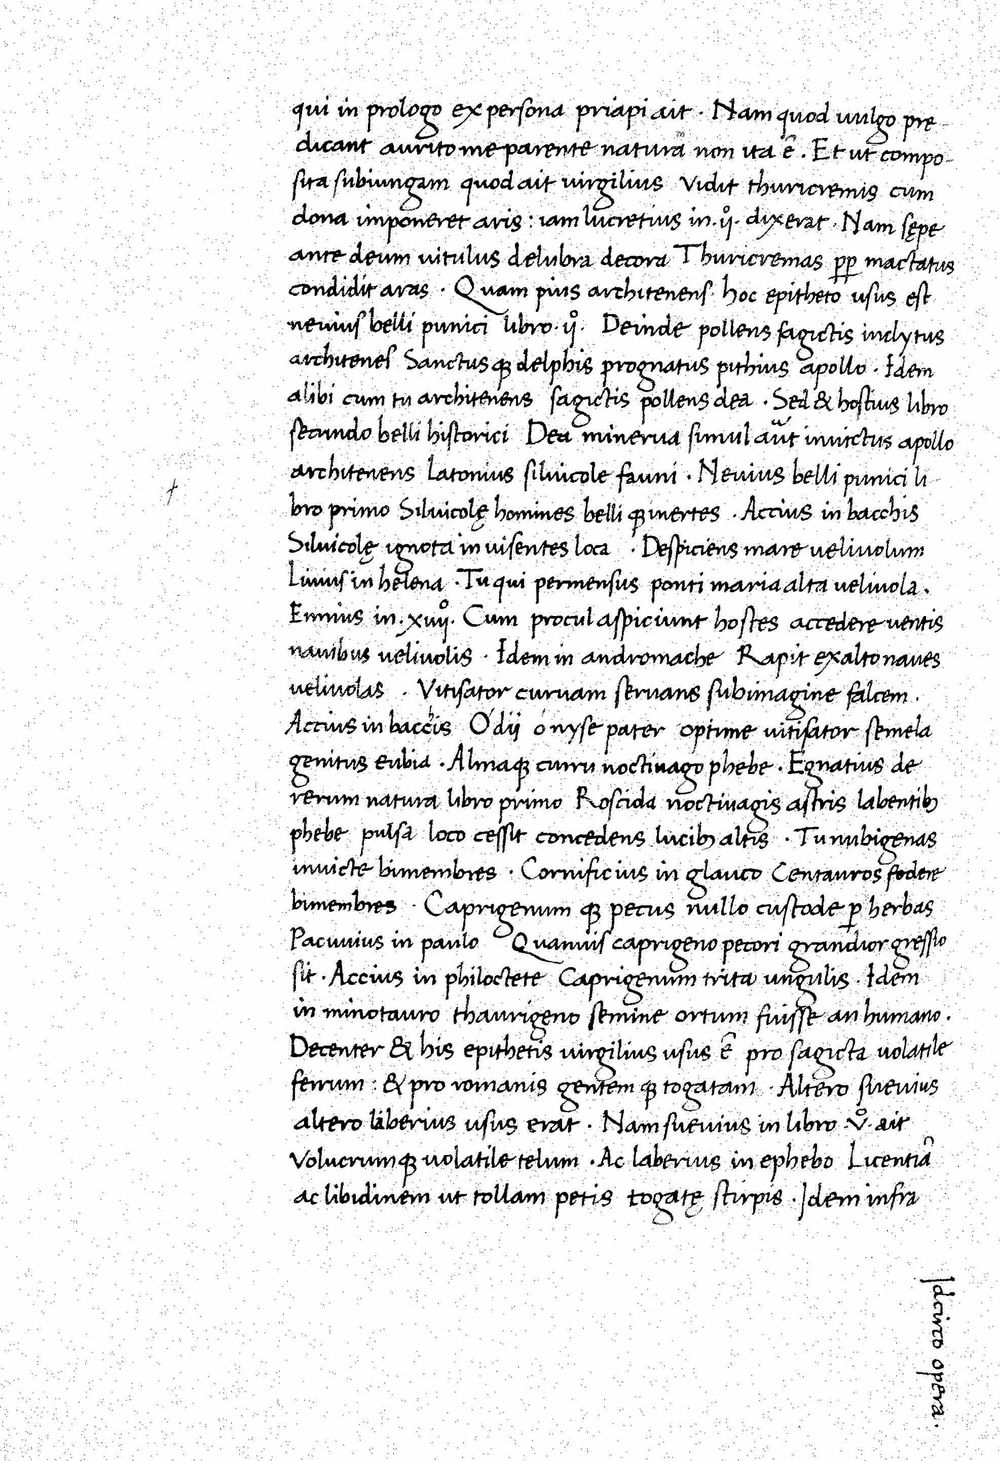 qui in prologo ex persona priapi ait · Nam quod uulgo prę
dicant aurito me parente naturā non ita ē . Et ut compo-
sita subiungam quod ait uirgilius Vidit thuricremis cum
dona imponeret aris : iam lucretius in .ijº. dixerat · Nam sępe
ante deum uitulus delubra decora Thuricremas ꝓꝑ mactatus
condidit aras · Quam pius architenens hoc epitheto usus est
neuius belli punici libro · ijº · Deinde pollens sagictis inclytus
architenes Sanctusqꝫ delphis prognatus pithius apollo · Idem
alibi cum tu architenens sagictis pollens dea · Sed & hostius libro
secundo belli historici Dea minerua simul aut inuictus apollo
architenens latonius siluicole fauni · Neuius belli punici li
bro primo Siluicolę homines belli qꝫ inertes · Accius in bacchis
Siluicolę ignota inuisentes loca · Despiciens mare ueliuolum
Liuius in helena · Tu qui permensus ponti maria alta ueliuola .
Ennius in . xiiijº. Cum procul aspiciunt hostes accedere uentis
nauibus ueliuolis · Idem in andromache Rapit ex alto naues
ueliuolas · Vitisator curuam seruans sub imagine falcem .
Accius in baccis O dij o nyse pater optime uitisator semela
genitus eubia · Almaqꝫ curru noctiuago phebe · Egnatius de
rerum natura libro primo Roscida noctiuagis astris labentibꝫ
phebe pulsa loco cessit concedens lucibꝫ altis · Tu nubigenas
inuicte bimembres · Cornificius in glauco Centauros fodere
bimembres · Caprigenum qꝫ pecus nullo custode ꝑ herbas
Pacuuius in paulo Quamuis caprigeno pecori grandior gressio
sit · Accius in philoctete Caprigenum trita ungulis · Idem
in minotauro thaurigeno semine ortum fuisse an humano .
Decenter & his epithetis uirgilius usus ē pro sagicta uolatile
ferrum : & pro romanis gentem qꝫ togatam · Altero sueuius
altero laberius usus erat · Nam sueuius in libro .vº. ait
Volucrumqꝫ uolatile telum · Ac laberius in ephebo Licentiā
ac libidinem ut tollam petis togatę stirpis · Idem infra
Idcirco opera .